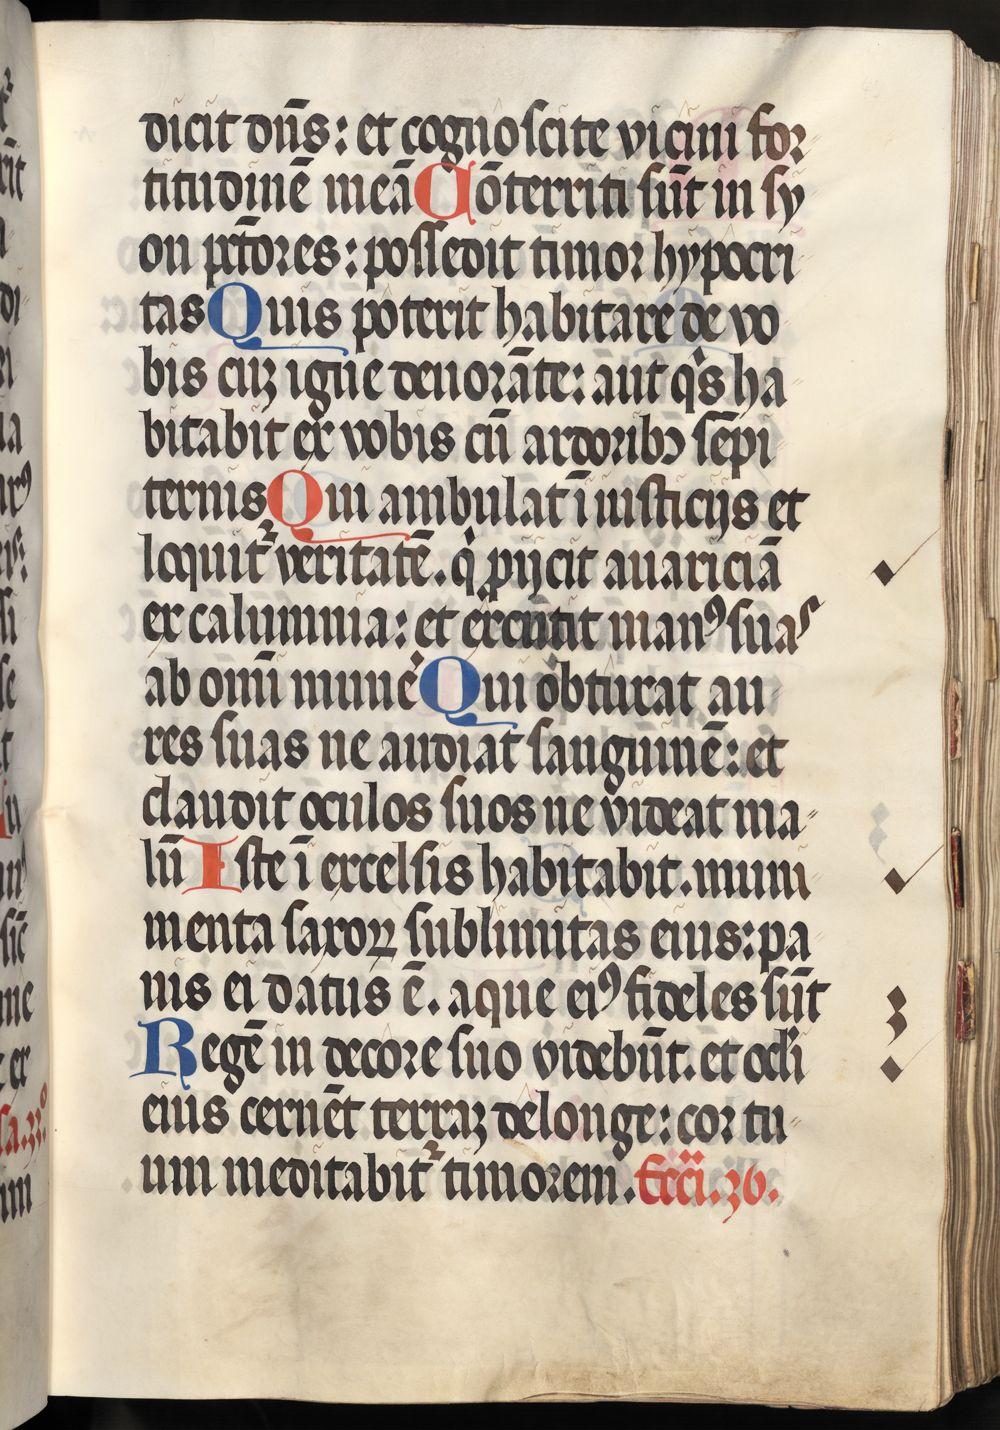 dicit dn̄s: et cognoscite vicini for
titudinē meā Cōterriti sūt in sy
on pctōres: possedit timor hypocri
tas Quis poterit habitare de vo
bis cuʒ igne deuorāte: aut qˢ ha
bitabit ex vobis cū ardoribꝰ sēpi
ternis Qui ambulat ī iusticijs et
loquit᷑ veritatē. q̇ ꝓijcit auariciā
ex calumnia: et excutit manꝰ suas
ab omī mune᷑ Qui obturat au
res suas ne audiat sanguinē: et
claudit oculos suos ne videat ma
lū Iste ī excelsis habitabit. muni
menta saxoꝝ sublimitas eius: pa
nis ei datus ē. aque eiꝰ fideles sūt
Regē in decore suo videbūt. et ocli
eius cernēt terraʒ de longe: cor tu
um meditabit᷑ timorem. Ecci. 36.